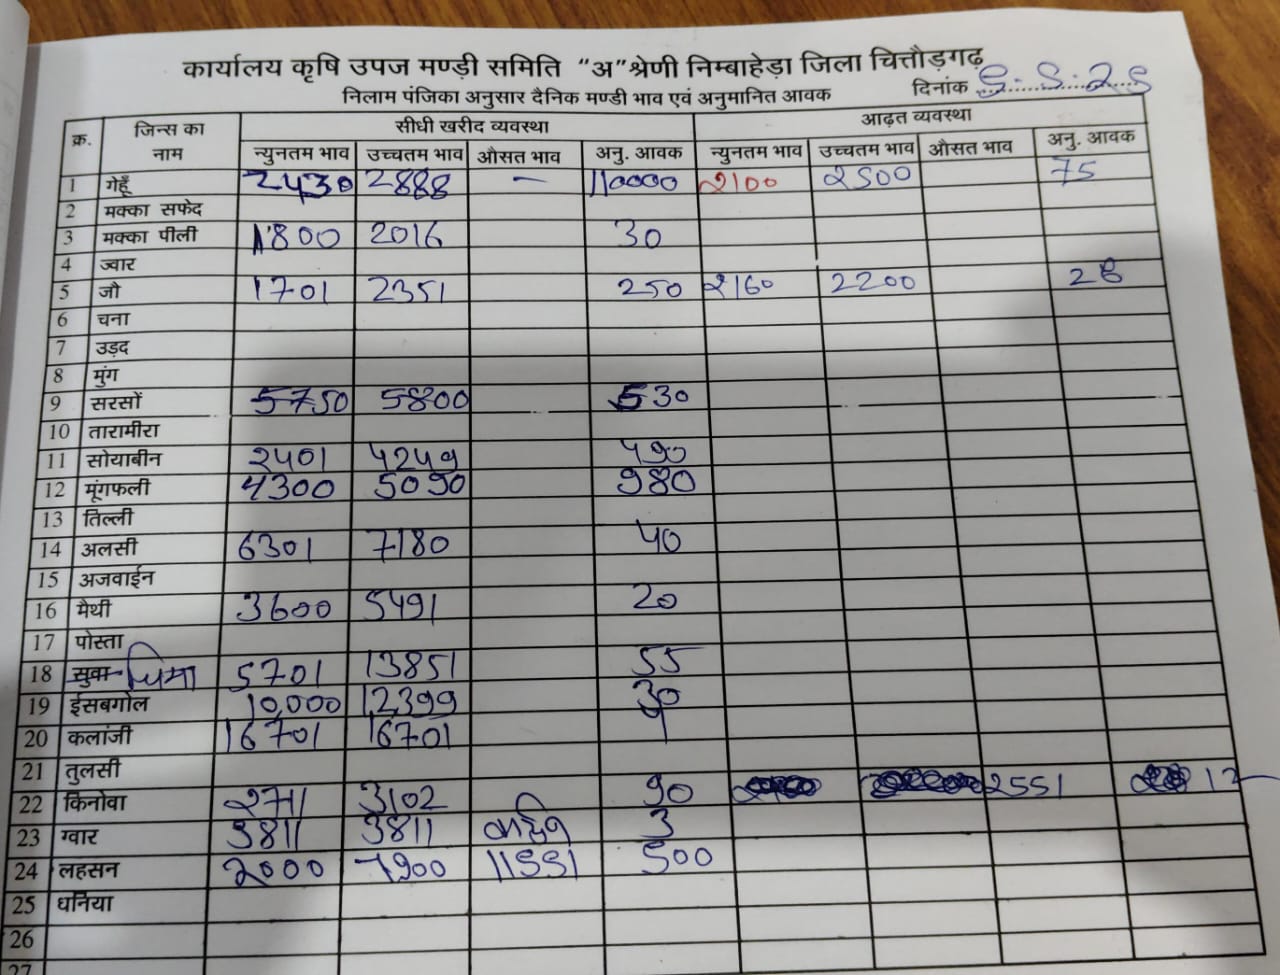 कार्यालय कृषि उपज मण्ड़ी समिति "अ"श्रेणी निम्बाहेड़ा जिला चित्तौड़गढ़
निलाम पंजिका अनुसार दैनिक मण्डी भाव एवं अनुमानित आवक दिनांक 5.5.25
क्र. जिन्स का नाम सीधी खरीद व्यवस्था आढ़त व्यवस्था
न्युनतम भाव उच्चतम भाव औसत भाव अनु. आवक न्युनतम भाव उच्चतम भाव औसत भाव अनु. आवक
1 गेहूँ 2430 2888 — 110000 2100 2500 75
2 मक्का सफेद
3 मक्का पीली 1800 2016 30
4 ज्वार
5 जौ 1701 2351 250 2160 2200
6 चना
7 उड़द
8 मुंग
9 सरसों 5750 5800 530
10 तारामीरा
11 सोयाबीन 2401 4249 490
12 मूंगफली 4300 5090 980
13 तिल्ली
14 अलसी 6301 7180 40
15 अजवाईन
16 मैथी 3600 5491 20
17 पोस्ता
18 सुवा चिया 5701 13851 55
19 ईसबगोल 10,000 12399 30
20 कलांजी 16701 16701 1
21 तुलसी
22 किनोवा 2711 3102 90 2551 12
23 ग्वार 3811 3811 3
24 लहसन 2000 7900 11551 500
25 धनिया
26
27